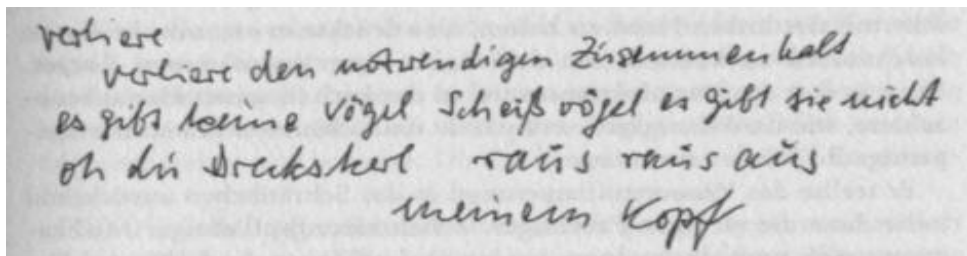 verliere
verliere den notwendigen Zusammenhalt
es gibt keine Vögel Scheißvögel es gibt sie nicht
oh du Dreckskerl raus raus aus
meinem Kopf